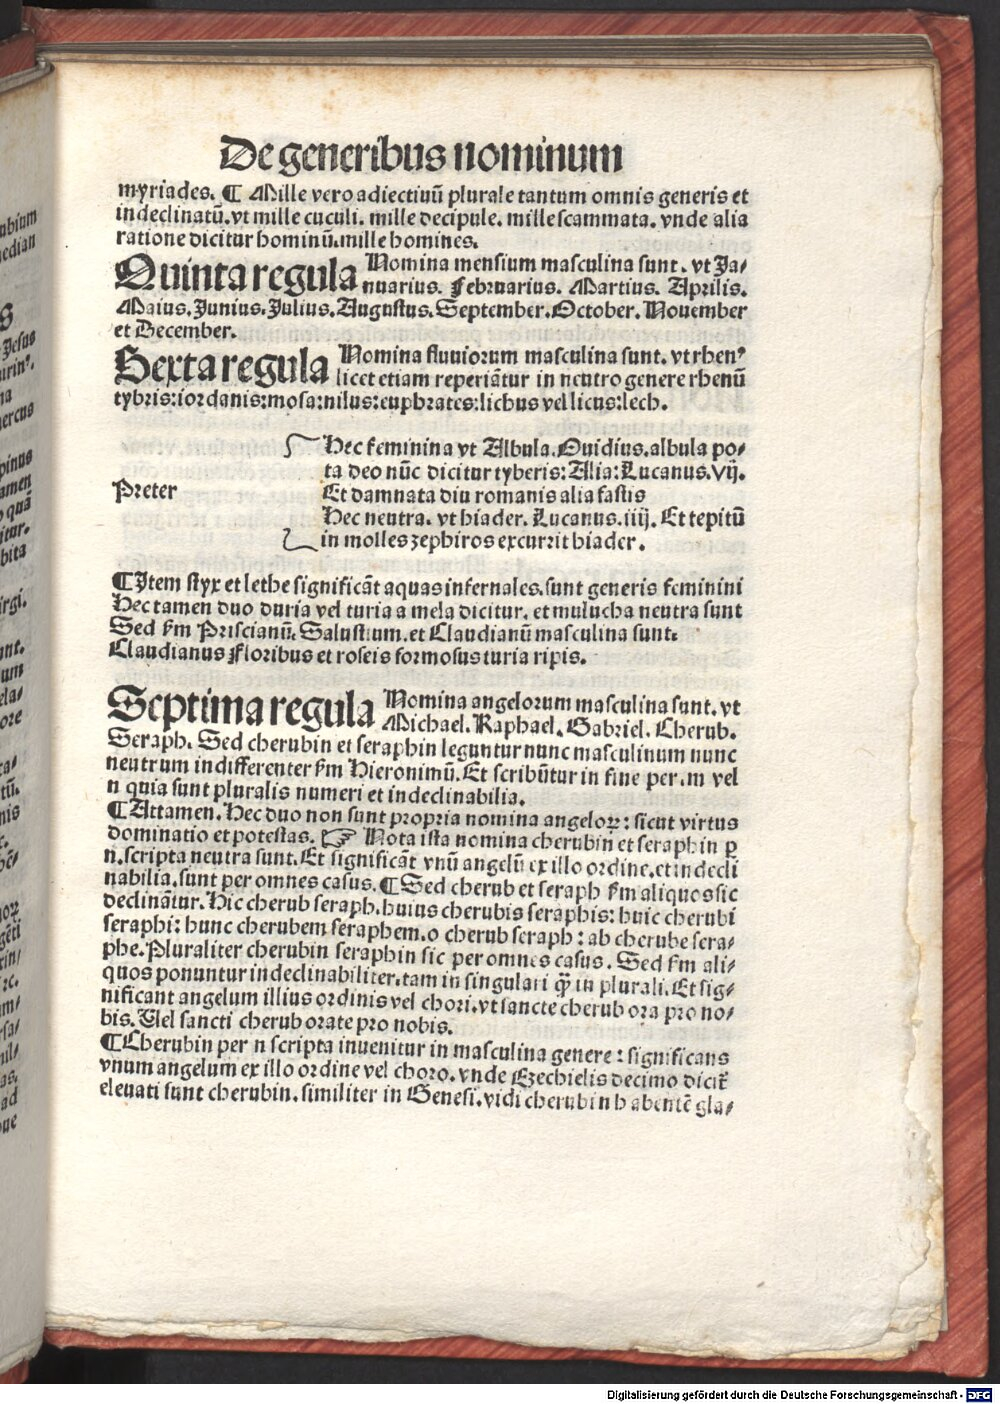 De generibus nominum
myriades. ¶ Mille vero adiectiuū plurale tantum omnis generis et
indeclinatū. vt mille cuculi. mille decipule. mille scammata. vnde alia
ratione dicitur hominū. mille homines.
Quinta regula Nomina mensium masculina sunt. vt Ja/
nuarius. Februarius. Martius. Aprilis.
Maius. Junius. Julius. Augustus. September. October. Nouember
et December.
Sexta regula Nomina fluuiorum masculina sunt. vt rhen⁹
licet etiam reperiātur in neutro genere rhenū
tybris: iordanis: mosa: nilus: euphrates: lichus vel licus: lech.
Hec feminina vt Albula. Ouidius. albula po/
ta deo nūc dicitur tyberis: Alia: Lucanus. vij.
Preter Et damnata diu romanis alia fastis
Hec neutra. vt hiader. Lucanus. iiij. Et tepitū
in molles zephiros excurrit hiader.
¶ Item styx et lethe significāt aquas infernales. sunt generis feminini
Hec tamen duo duria vel turia a mela dicitur. et mulucha neutra sunt
Sed ẜm Priscianū. Salustium. et Claudianū masculina sunt.
Claudianus Floribus et roseis formosus turia ripis.
Septima regula Nomina angelorum masculina sunt. vt
Michael. Raphael. Gabriel. Cherub.
Seraph. Sed cherubin et seraphin leguntur nunc masculinum nunc
neutrum indifferenter ẜm Hieronimū. Et scribūtur in fine per .m vel
n quia sunt pluralis numeri et indeclinabilia.
¶ Attamen. Hec duo non sunt propria nomina angeloꝝ: sicut virtus
dominatio et potestas. ☞ Nota ista nomina cherubin et seraphin ꝑ
n. scripta neutra sunt. Et significāt vnū angelū ex illo ordine. et indecli
nabilia. sunt per omnes casus. ¶ Sed cherub et seraph ẜm aliquos sic
declinātur. Hic cherub seraph. huius cherubis seraphis: huic cherubi
seraphi: hunc cherubem seraphem. o cherub seraph: ab cherube sera/
phe. Pluraliter cherubin seraphin sic per omnes casus. Sed ẜm ali/
quos ponuntur indeclinabiliter. tam in singulari ꝙ̄ in plurali. Et sig/
nificant angelum illius ordinis vel chori. vt sancte cherub ora pro no/
bis. Vel sancti cherub orate pro nobis.
¶ Cherubin per n scripta inuenitur in masculina genere: significans
vnum angelum ex illo ordine vel choro. vnde Ezechielis decimo dicit᷑
eleuati sunt cherubin. similiter in Genesi. vidi cherubin habentē gla/
Digitalisierung gefördert durch die Deutsche Forschungsgemeinschaft - DFG